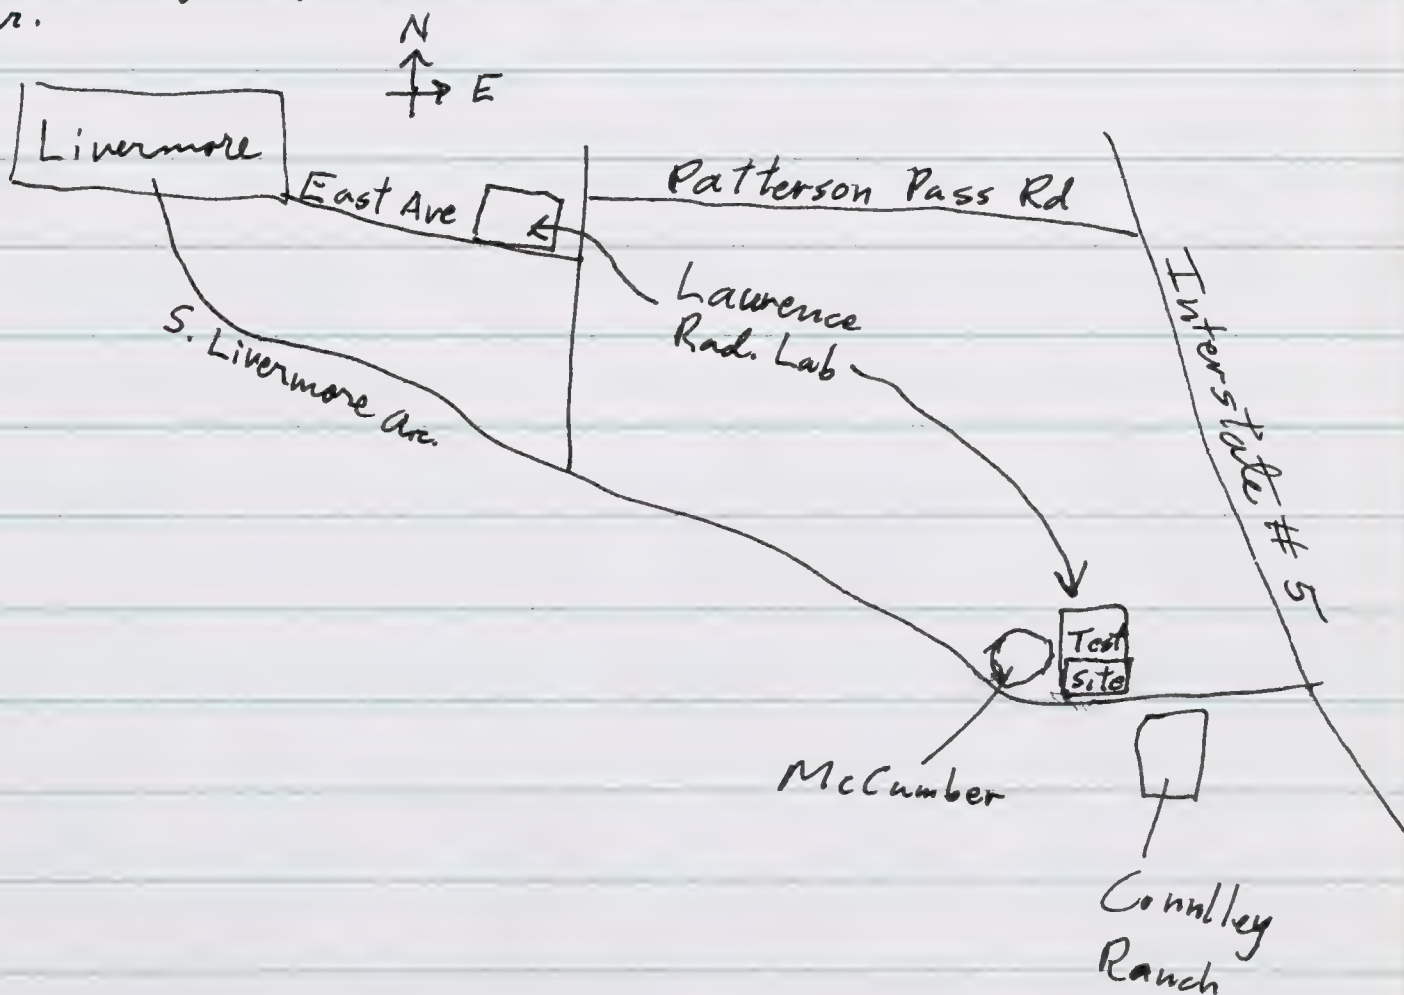 r.
N
E
Livermore
East Ave
Patterson Pass Rd
Lawrence
Rad. Lab
S. Livermore Ave.
Interstate # 5
Test
site
McCumber
Connlley
Ranch